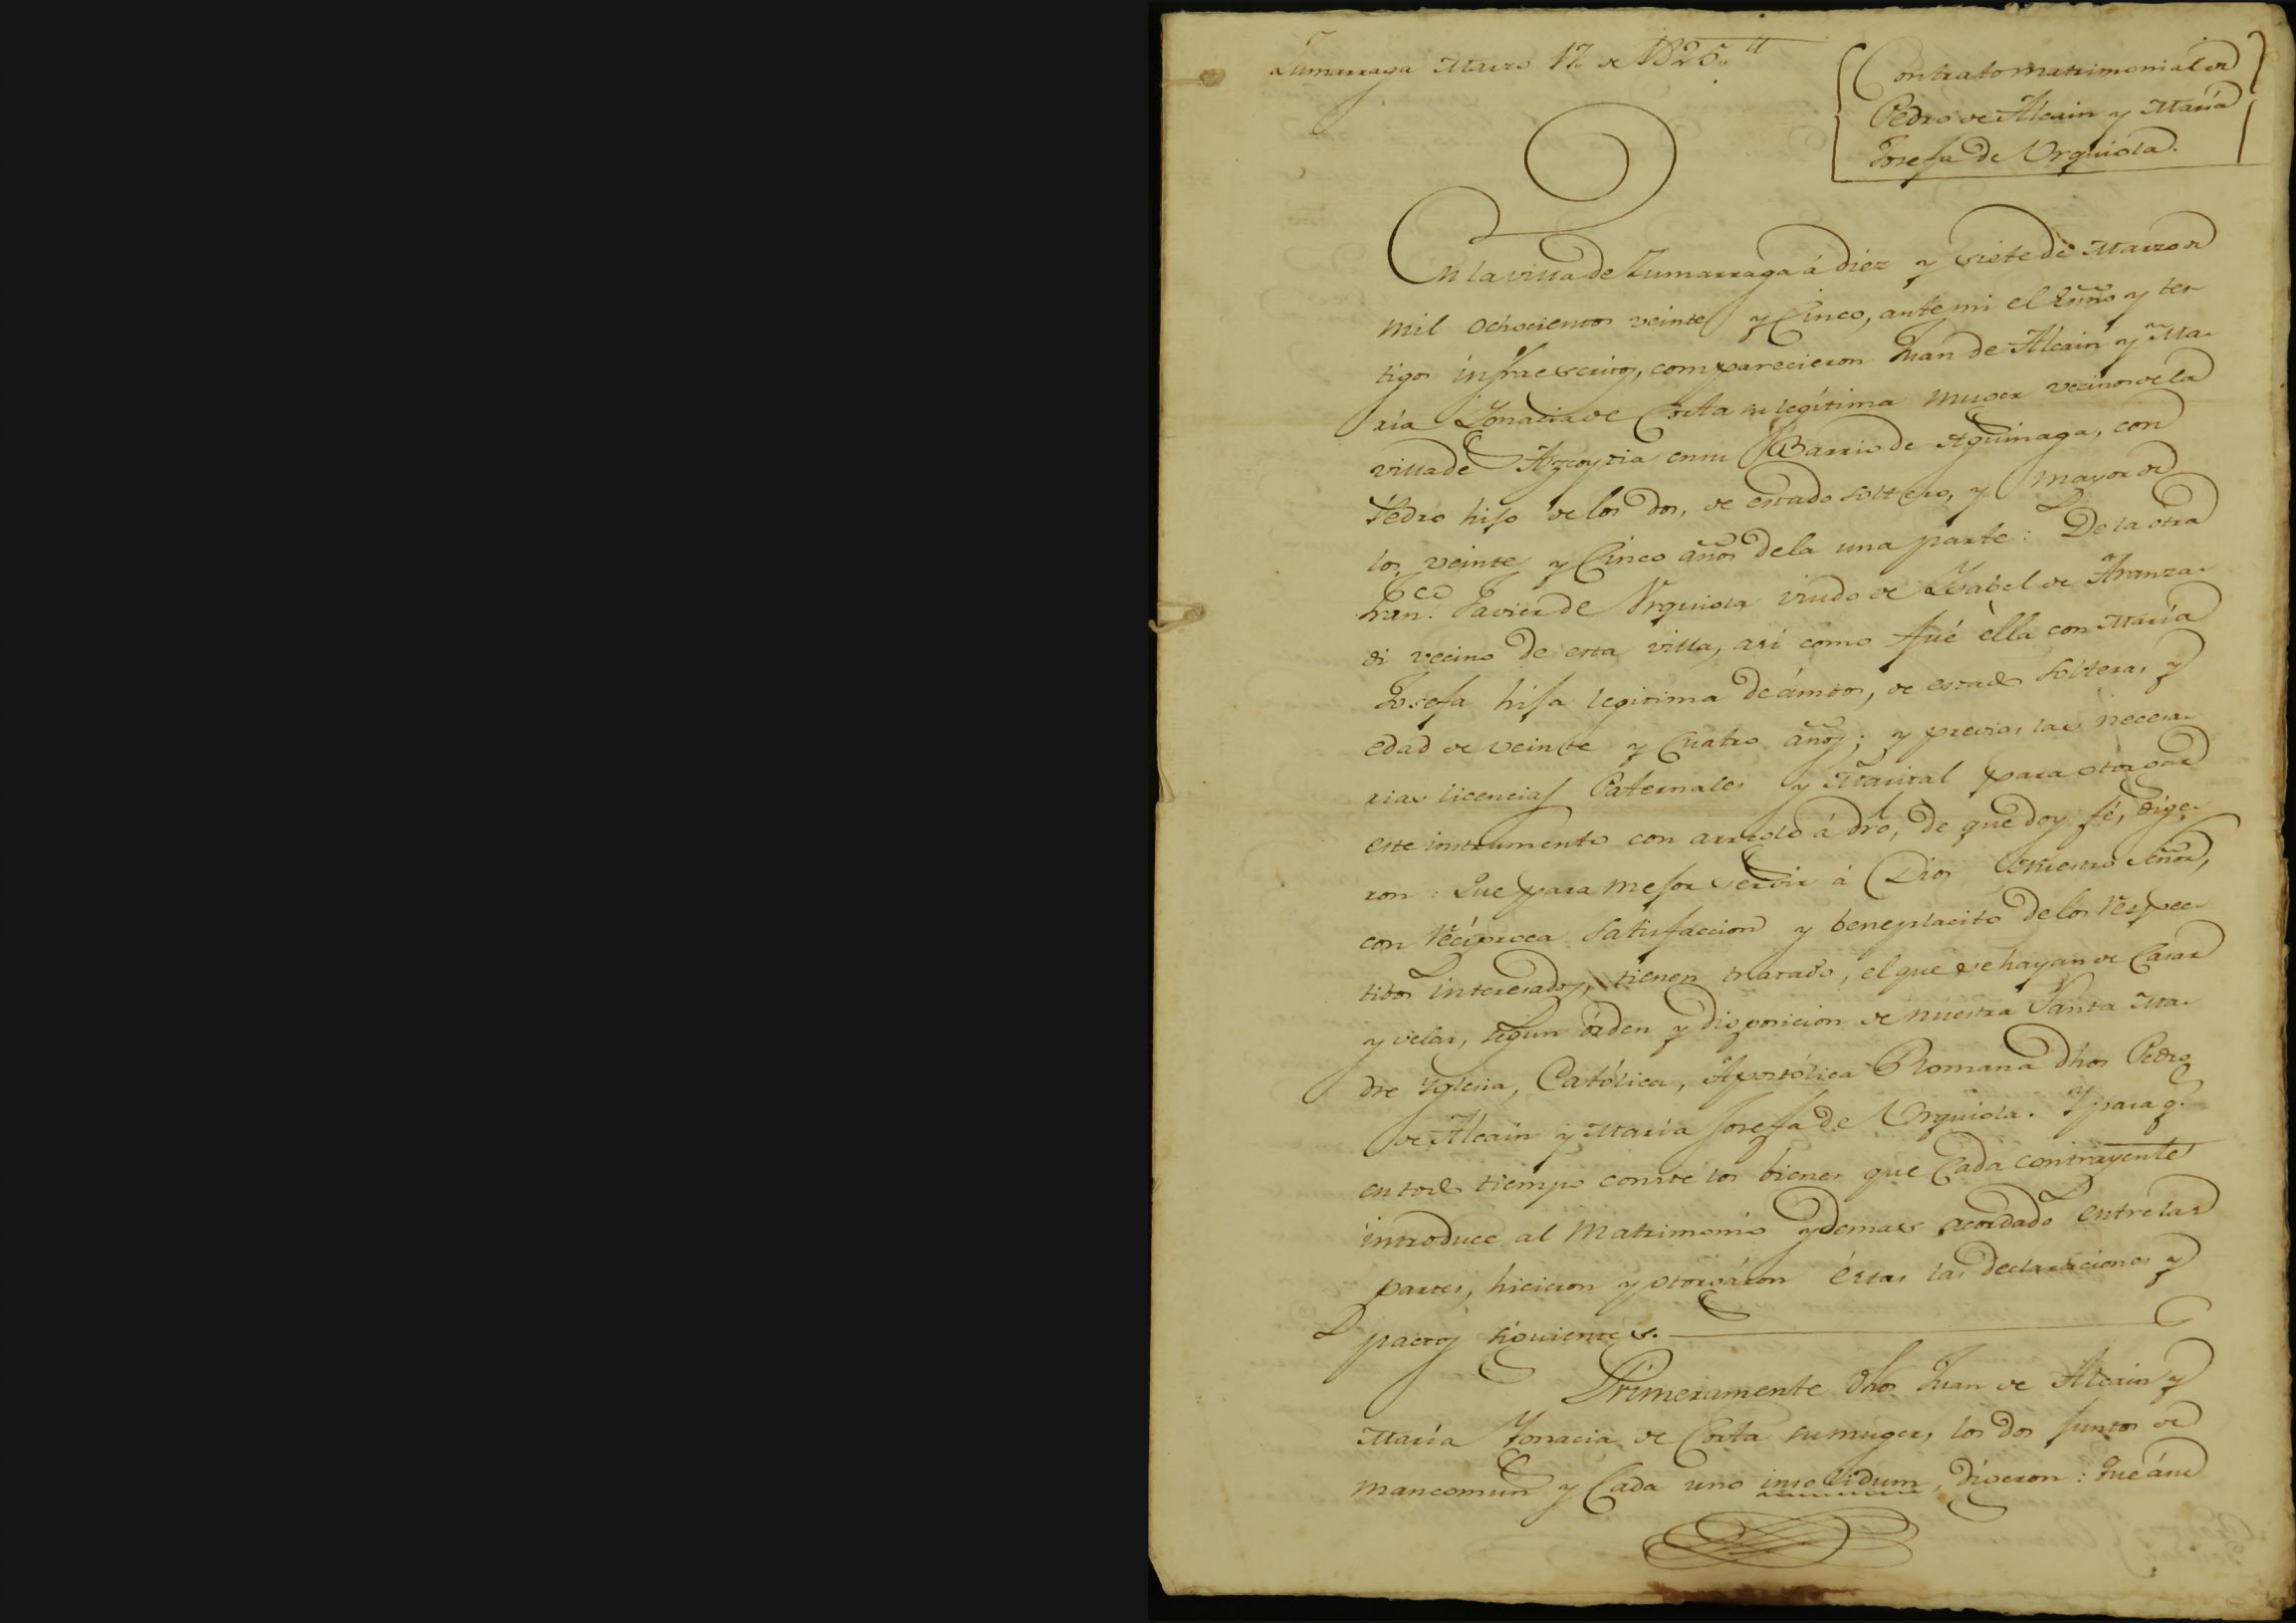 Zumarraga Marzo 17 de 1825
Contrato matrimonial de
Pedro de Alcain y María
Josefa de Urquiola.
En la villa de Zumarraga á diez y siete de Marzo de
mil ochocientos veinte y Cinco, ante mi el Essno y tes-
tigos infraescritos, comparecieron Juan de Alcain y Ma-
ría Ygnacia de Corta su legítima muger vecinos de la
villa de Azcoytia en su Barrio de Aguinaga, con
Pedro hijo de los dos, de estado soltero, y mayor de
los veinte y Cinco años de la una parte: De la otra
Franco. Javier de Urquiola viudo de Ysabel de Aranza-
di vecino de esta villa, así como fué èlla con María
Josefa hija legitima de ámbos, de estado soltera, y
edad de veinte y Cuatro años; y previas las necesa-
rias licencias Paternales y Marital para otorgar
este instrumento con arreglo á dro, de que doy fé, dige-
ron: Que para mejor servir á Dios Nuestro Señor,
con Recíproca satisfaccion y beneplacito de los Respec-
tibos interesados, tienen tratado, el que se hayan de Casar
y velar, segun órden y disposicion de nuestra Santa Ma-
dre Yglesia, Católica, Apostólica Romana dhos Pedro
de Alcain y María Josefa de Urquiola. Y para q.e
en todo tiempo conste los bienes que Cada contrayente
introduce al Matrimonio y demas acordado entre las
partes, hicieron y otorgáron éstas las declaraciones y
pactos siguientes.
Primeramente dhos Juan de Alcain y
María Ygnacia de Corta su muger, los dos juntos de
mancomun y Cada uno insolidum, digeron: Que áun